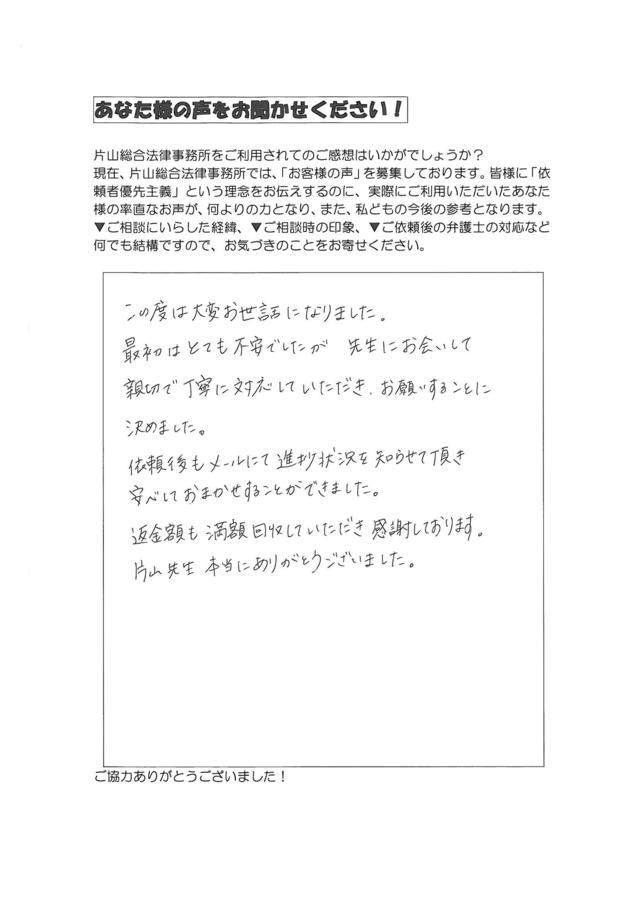 あなた様の声をお聞かせください！
片山総合法律事務所をご利用されてのご感想はいかがでしょうか？
現在、片山総合法律事務所では、「お客様の声」を募集しております。皆様に「依
頼者優先主義」という理念をお伝えするのに、実際にご利用いただいたあなた
様の率直なお声が、何よりの力となり、また、私どもの今後の参考となります。
▼ご相談にいらした経緯、▼ご相談時の印象、▼ご依頼後の弁護士の対応など
何でも結構ですので、お気づきのことをお寄せください。
この度は大変お世話になりました。
最初はとても不安でしたが 先生にお会いして
親切で丁寧に対応していただき、お願いすることに
決めました。
依頼後もメールにて進捗状況を知らせて頂き
安心しておまかせすることができました。
返金額も満額回収していただき感謝しております。
片山先生 本当にありがとうございました。
ご協力ありがとうございました！